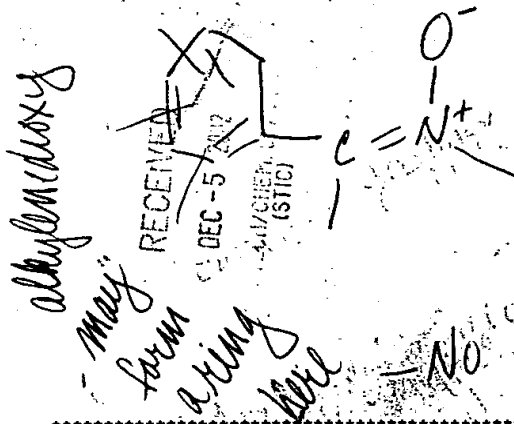 alkylenedioxy
may
form
a ring
here
RECEIVED
DEC - 5 2002
(STIC)
O-
C = N+
- No